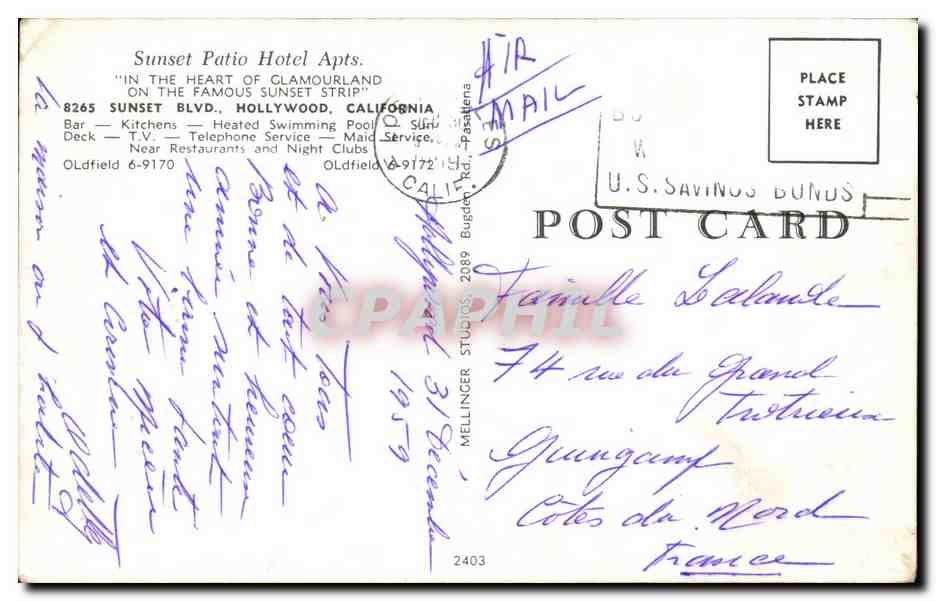 Sunset Patio Hotel Apts.
"IN THE HEART OF GLAMOURLAND
ON THE FAMOUS SUNSET STRIP"
8265 SUNSET BLVD., HOLLYWOOD, CALIFORNIA
Bar — Kitchens — Heated Swimming Pool — Sun
Deck — T.V. — Telephone Service — Maid Service,
Near Restaurants and Night Clubs
OLdfield 6-9170 OLdfield 6-9172
AIR
MAIL
CALIF.
PLACE
STAMP
HERE
U.S. SAVINGS BONDS
POST CARD
MELLINGER STUDIOS, 2089 Bugden Rd., Pasadena
2403
Hollywood 31 Décembre
1959
A vous tous
et de tout cœur
Bonne et heureuse
année surtout
une bonne santé
Votre
et Caroline
la maison où j'habite
Famille Lalande
74 rue du Grand
Trotrieux
Guingamp
Côtes du Nord
France
CPAPHIL